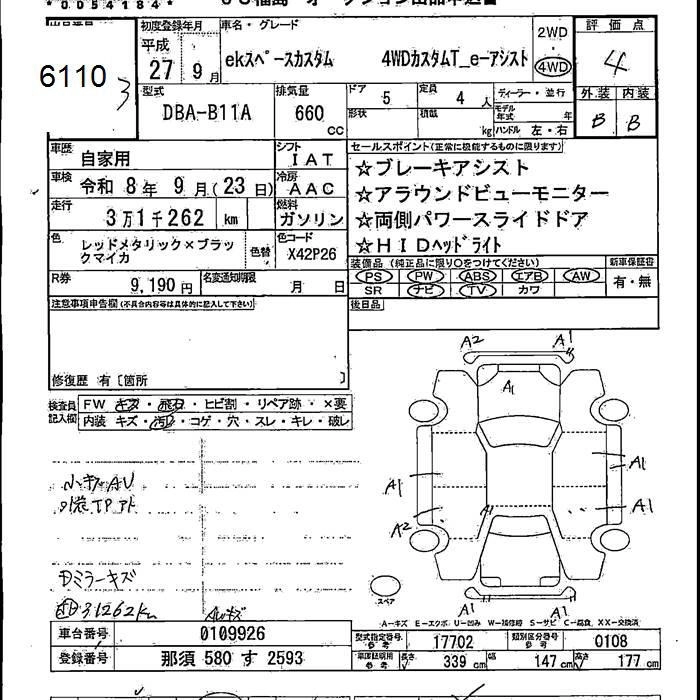 *0054184*
出品番号
6110
初度登録年月
平成
27年9月
車名・グレード
ekスペースカスタム 4WDカスタムT_e-アシスト
2WD
・
4WD
評価点
4
型式
DBA-B11A
排気量
660
CC
ドア
5
定員
4人
形状
積載
kg
ディーラー・並行
モデル年式 年
ハンドル 左・右
外装 内装
B B
車歴
自家用
シフト
IAT
車検
令和 8年 9月(23日)
冷房
AAC
走行
3万1千262 km
燃料
ガソリン
色
レッドメタリック×ブラックマイカ
色替
色コード
X42P26
R券
9,190円
名変通知期限
月 日
セールスポイント(正常に機能するものに限ります)
☆ブレーキアシスト
☆アラウンドビューモニター
☆両側パワースライドドア
☆HIDヘッドライト
装備品(純正品に限り○をつけてください)
新車保証書
PS PW ABS エアB AW
有・無
SR ナビ TV カワ
後日品
注意事項申告欄(不具合内容等は具体的に記入して下さい)
修復歴 有〔箇所 〕
検査員記入欄
FW キズ・飛石・ヒビ割・リペア跡・×要
内装 キズ・汚れ・コゲ・穴・スレ・キレ・破レ
小キズAU
内装TPアト
Dミラーキズ
31262km
AWキズ
A2 A1
A1
A1 A1
A1
A2 A1
A1 A1
スペア
A-キズ E-エクボ U-凹み W-補修跡 S-サビ C-腐食 XX-交換済
車台番号
0109926
登録番号
那須 580 す 2593
型式指定番号
参考
17702
類別区分番号
参考
0108
車庫証明用
参考
長さ
339cm
幅
147cm
高さ
177cm